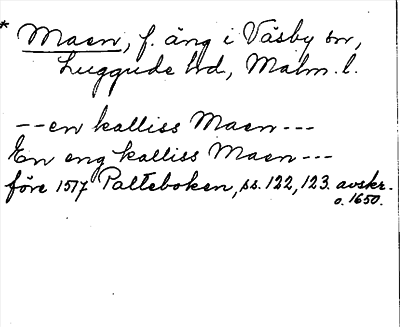 * Maen, f. äng i Väsby sn,
Luggude hd, Malm. l.
-- en kalliss Maen ---
En eng kalliss Maen ---
före 1517 Palteboken, ss. 122, 123. avskr.
o. 1650.